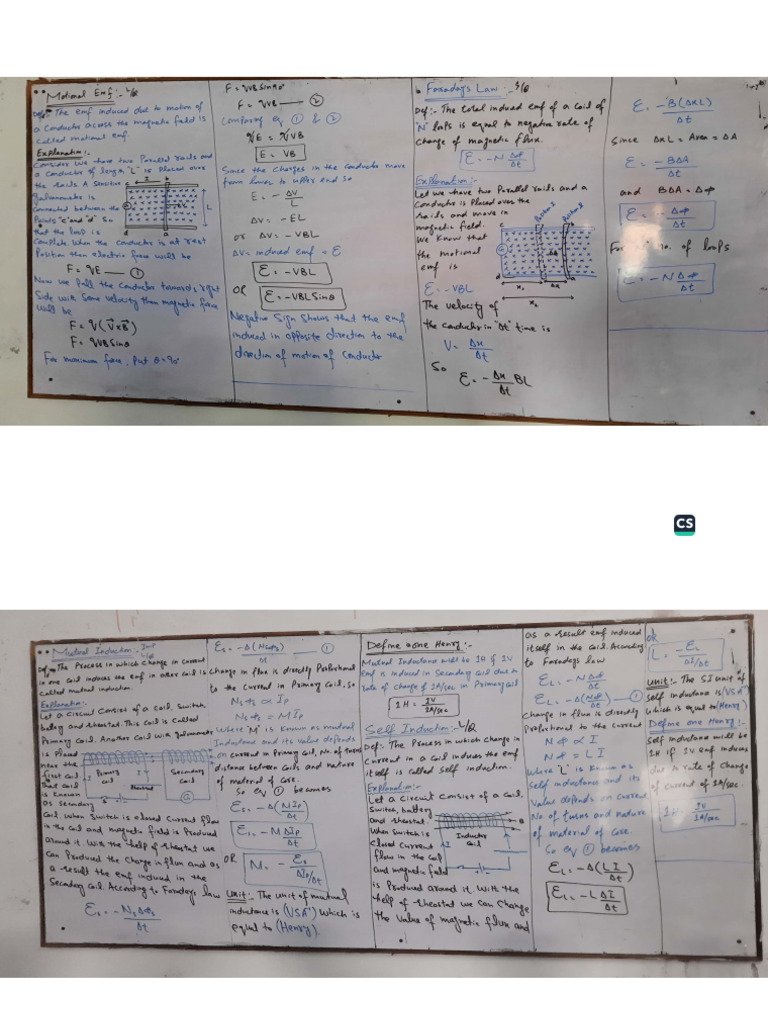 Motional Emf :- L/Q
Def:- The emf induced due to motion of
a Conductor across the magnetic field is
called motional emf.
Explanation:-
Consider we have two Parallel rails and
a conductor of length "L" is Placed over
the rails A sensitive
galvanometer is
connected between the
Points "c" and "d" So
that the loop is
Complete. When the conductor is at rest
Position then electric force will be
F = qE — ①
Now we Pull the Conductor towards right
Side with Some velocity then magnetic force
will be
F = q(V×B)
F = qVBSinθ
For maximum force, Put θ = 90°
F = qVBSin90°
F = qVB — ②
Comparing eq ① & ②
qE = qVB
E = VB
Since the Charges in the Conductor move
from lower to upper end So
E = - ΔV/L
ΔV = - EL
or ΔV = - VBL
ΔV = induced emf = Ɛ
Ɛ = - VBL
OR Ɛ = - VBLSinθ
Negative Sign Shows that the emf
induced in opposite direction to the
direction of motion of Conductor
Faraday's Law :- L/Q
Def:- The total induced emf of a Coil of
"N" loops is equal to negative rate of
change of magnetic flux.
Ɛ = - N Δφ/Δt
Explanation:-
Let we have two Parallel rails and a
conductor is Placed over the
rails and move in
magnetic field.
We Know that
the motional
emf is
Ɛ = - VBL
The velocity of
the conductor in "Δt" time is
V = Δx/Δt
So
Ɛ = - Δx/Δt BL
Ɛ = - B(ΔxL)/Δt
Since ΔxL = Area = ΔA
Ɛ = - BΔA/Δt
and BΔA = Δφ
Ɛ = - Δφ/Δt
no. of loops
= - N Δφ/Δt
CS
Mutual Induction:-
Def:- The Process in which Change in Current
in one Coil induces the emf in other Coil is
Called mutual induction.
Explanation:-
Let a Circuit Consist of a Coil, Switch,
battery and rheostat. This Coil is Called
Primary Coil. Another Coil with galvanometer
is Placed
near the
first Coil.
that Coil
is Known
as Secondary
Primary Coil
Rheostat
Secondary Coil
G
Coil when Switch is closed Current flow
in the Coil and magnetic field is Produced
around it. With the help of rheostat we
can Produced the Change in flux and as
a result the emf induced in the
Secondary Coil. According to Faraday's law
Ɛs = - NsΔφs/Δt
Ɛs = - Δ(Nsφs)/ — ①
Change in flux is directly Proportional
to the Current in Primary Coil, So
Nsφs ∝ Ip
Nsφs = MIp
Where "M" is Known as mutual
Inductance and its Value depends
on Current in Primary Coil, No. of turns
distance between Coils and nature
of material of Core.
So eq ① becomes
Ɛs = - Δ(MIp)/Δt
Ɛs = - MΔIp/Δt
OR M = - Ɛs/ΔIp/Δt
Unit:- The unit of mutual
inductance is (VSA⁻¹) Which is
equal to (Henry).
Define one Henry:-
Mutual Inductance will be 1H if 1V
emf is induced in Secondary Coil due to
rate of Change of 1A/sec in Primary Coil
1H = 1V/1A/sec
Self Induction:- L/Q
Def:- The Process in which Change in
Current in a Coil induces the emf
itself is called self induction.
Explanation:-
Let a Circuit Consist of a Coil,
Switch, battery
and rheostat
When Switch is
closed Current
flow in the Coil
and magnetic field
Inductor Coil
is Produced around it. With the
help of rheostat we Can Change
the Value of magnetic flux and
as a result emf induced
itself in the Coil. According
to Faraday's law
ƐL = - NΔφ/Δt
ƐL = - Δ(Nφ)/Δt — ①
Change in flux is directly
Proportional to the Current
Nφ ∝ I
Nφ = LI
Where "L" is Known as
Self inductance and its
Value depends on Current
No. of turns and nature
of material of Core.
So eq ① becomes
ƐL = - Δ(LI)/Δt
ƐL = - LΔI/Δt
OR
L = - ƐL/ΔI/Δt
Unit:- The S.I unit of
self Inductance is (VSA⁻¹)
Which is equal to (Henry)
Define one Henry:-
Self Inductance will be
1H if 1V emf induces
due to rate of Change
of Current of 1A/sec.
1H = 1V/1A/sec